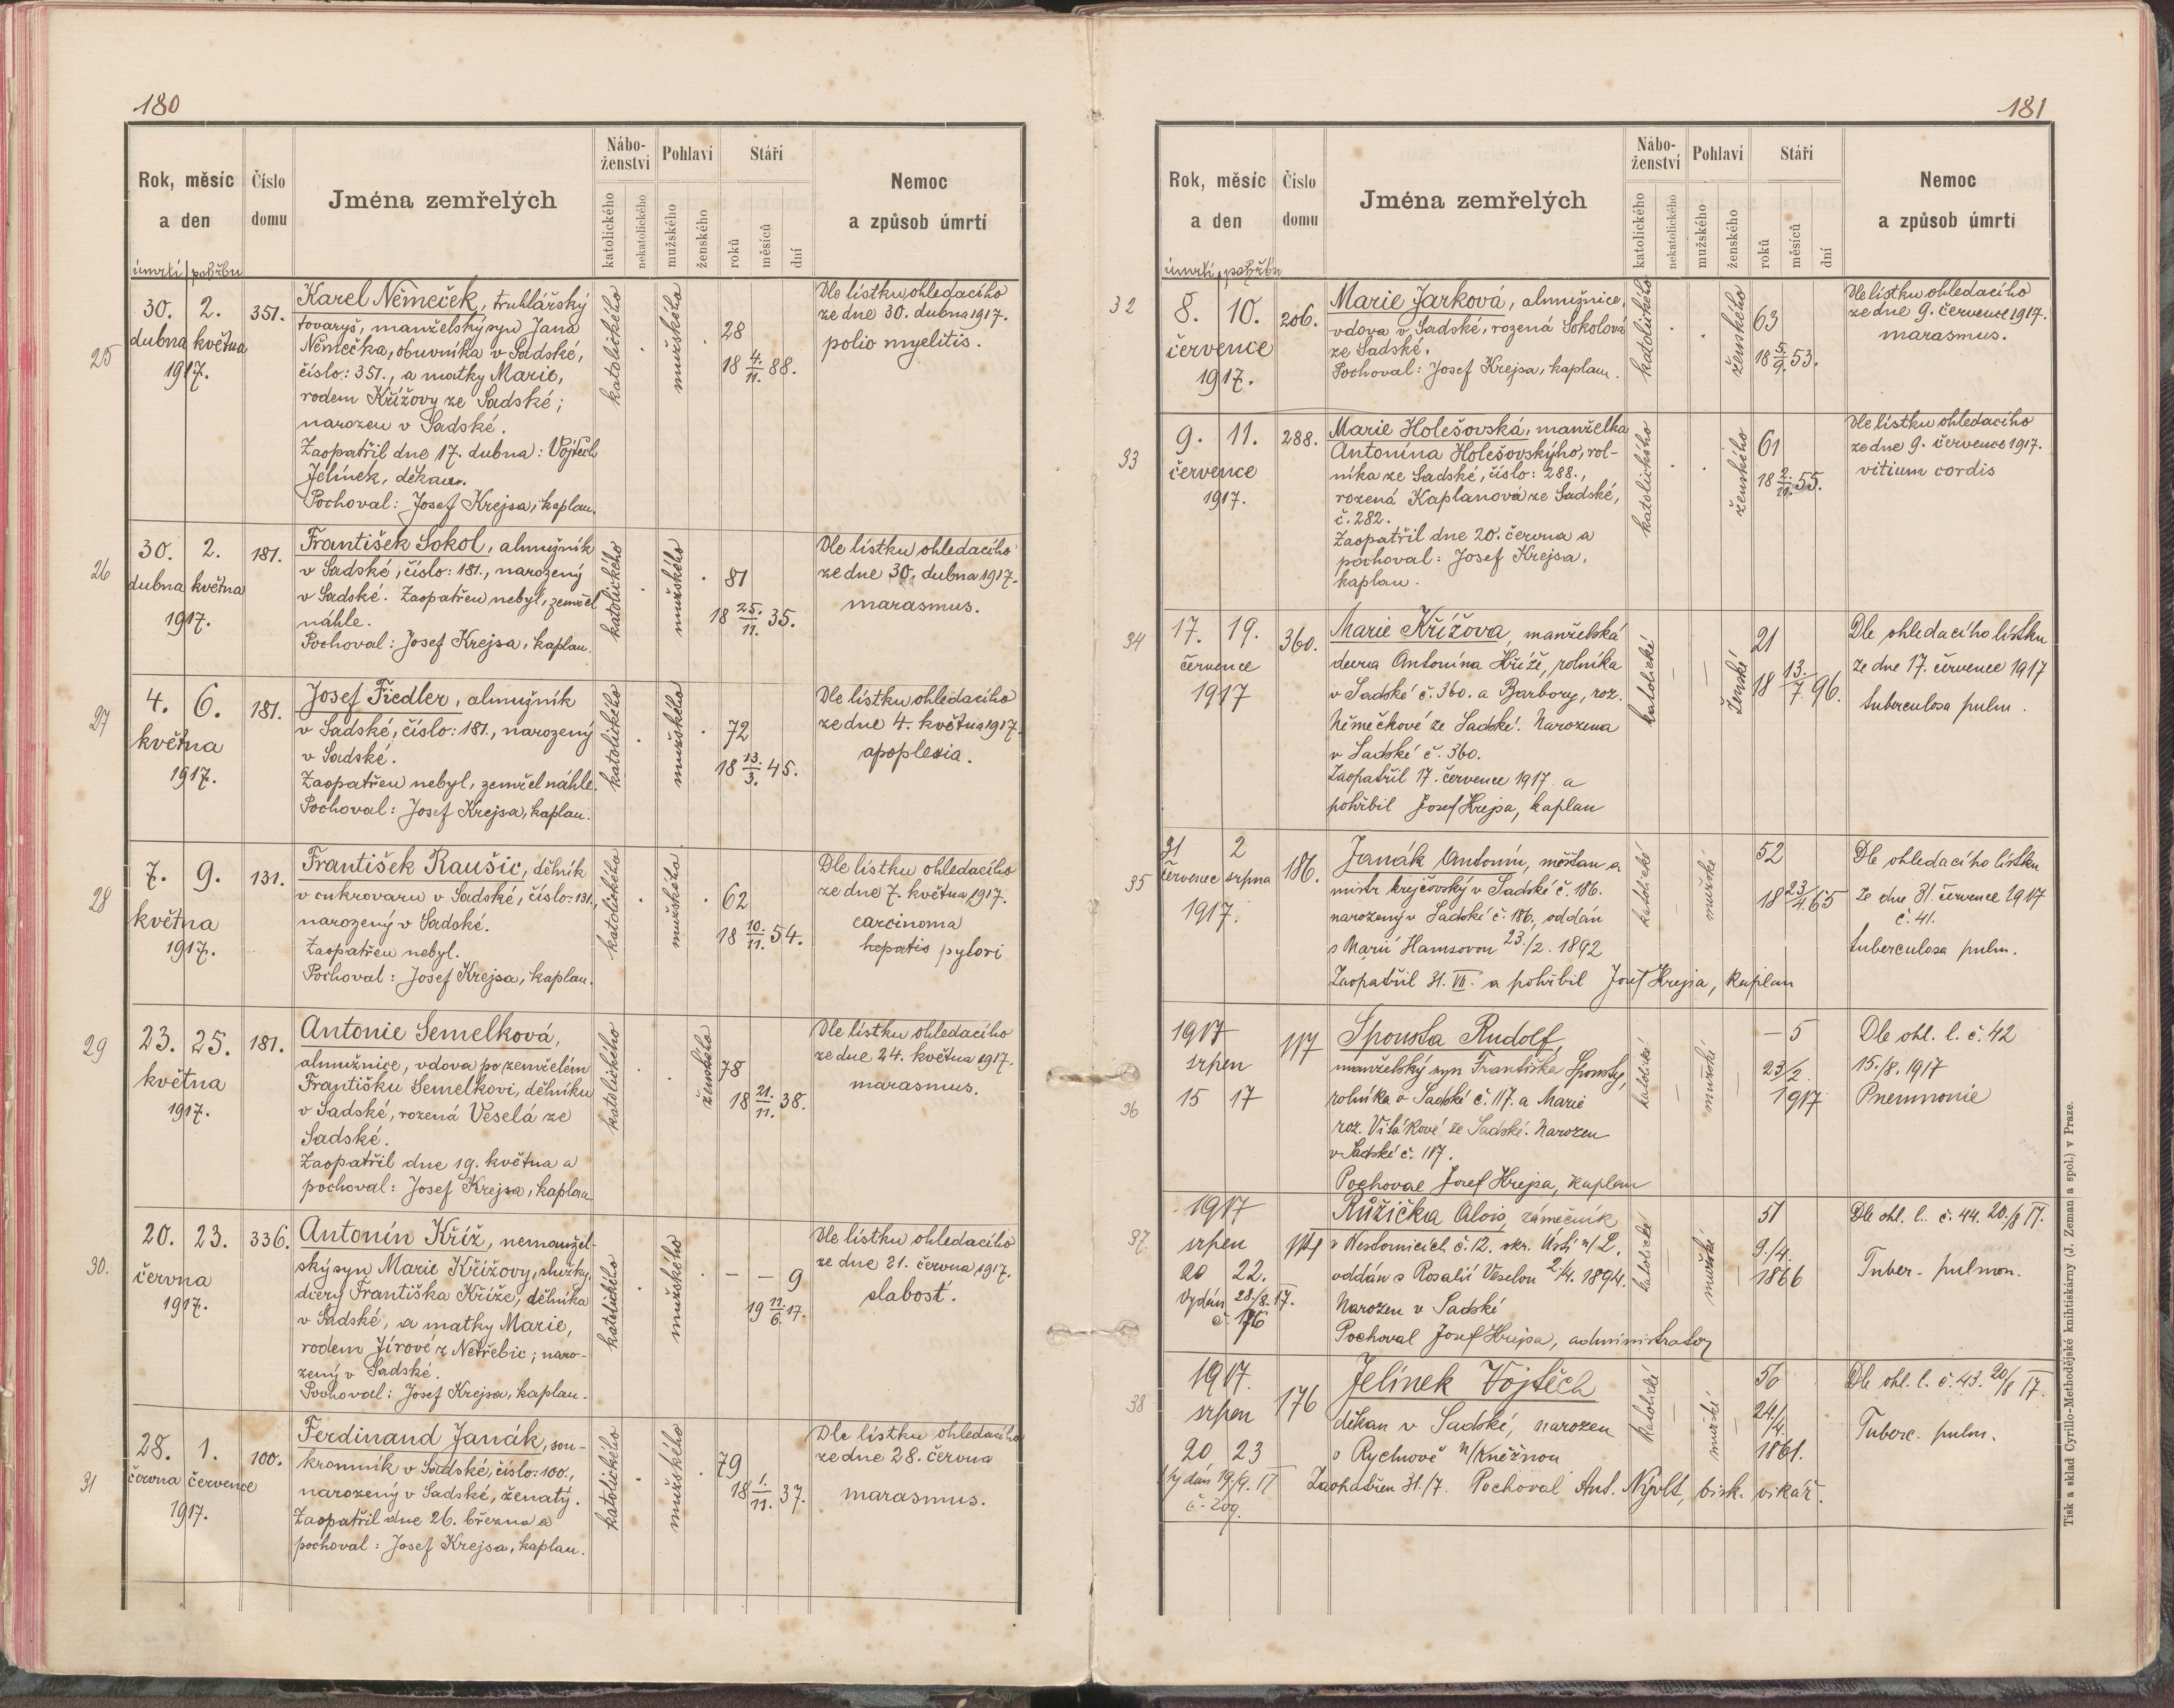 180
Rok, měsíc
a den
úmrtí pohřbu
Číslo
domu
Jména zemřelých
Nábo-
ženství
katolického
nekatolického
Pohlaví
mužského
ženského
Stáří
roků
měsíců
dní
Nemoc
a způsob úmrtí
25
30. 2.
dubna května
1917.
351.
Karel Němeček, truhlářský
tovaryš, manželský syn Jana
Němečka, obuvníka v Sadské,
číslo: 351., a matky Marie,
rodem Křížovy ze Sadské;
narozen v Sadské.
Zaopatřil dne 17. dubna: Vojtěch
Jelínek, děkan.
Pochoval: Josef Krejsa, kaplan.
katolického
mužského
28
18 4./11. 88.
Dle lístku ohledacího
ze dne 30. dubna 1917.
polio myelitis.
26
30. 2.
dubna května
1917.
181.
František Sokol, almužník
v Sadské, číslo: 181., narozený
v Sadské. Zaopatřen nebyl, zemřel
náhle.
Pochoval: Josef Krejsa, kaplan.
katolického
mužského
81
18 25./11. 35.
Dle lístku ohledacího
ze dne 30. dubna 1917.
marasmus.
27
4. 6.
května
1917.
181.
Josef Fiedler, almužník
v Sadské, číslo: 181., narozený
v Sadské.
Zaopatřen nebyl, zemřel náhle.
Pochoval: Josef Krejsa, kaplan.
katolického
mužského
72
18 13./3. 45.
Dle lístku ohledacího
ze dne 4. května 1917.
apoplexia.
28
7. 9.
května
1917.
131.
František Raušic, dělník
v cukrovaru v Sadské, číslo: 131.,
narozený v Sadské.
Zaopatřen nebyl.
Pochoval: Josef Krejsa, kaplan.
katolického
mužského
62
18 10./11. 54.
Dle lístku ohledacího
ze dne 7. května 1917.
carcinoma
hepatis pylori
29
23. 25.
května
1917.
181.
Antonie Semelková,
almužnice, vdova po zemřelém
Františku Semelkovi, dělníku
v Sadské, rozená Veselá ze
Sadské.
Zaopatřil dne 19. května a
pochoval: Josef Krejsa, kaplan.
katolického
ženského
78
18 21./11. 38.
Dle lístku ohledacího
ze dne 24. května 1917.
marasmus.
30.
20. 23.
června
1917.
336.
Antonín Kříž, nemanžel-
ský syn Marie Křížovy, služky,
dcery Františka Kříže, dělníka
v Sadské, a matky Marie,
rodem Jírové z Netřebic; naro-
zený v Sadské.
Pochoval: Josef Krejsa, kaplan.
katolického
mužského
– – 9
19 11./6. 17.
Dle lístku ohledacího
ze dne 21. června 1917.
slabost.
31
28. 1.
června července
1917.
100.
Ferdinand Janák, sou-
kromník v Sadské, číslo: 100.,
narozený v Sadské, ženatý.
Zaopatřil dne 26. března a
pochoval: Josef Krejsa, kaplan.
katolického
mužského
79
18 1./11. 37.
Dle lístku ohledacího
ze dne 28. června
marasmus.
181
Rok, měsíc
a den
úmrtí pohřbu
Číslo
domu
Jména zemřelých
Nábo-
ženství
katolického
nekatolického
Pohlaví
mužského
ženského
Stáří
roků
měsíců
dní
Nemoc
a způsob úmrtí
32
8. 10.
července
1917.
206.
Marie Jarková, almužnice,
vdova v Sadské, rozená Sokolová
ze Sadské.
Pochoval: Josef Krejsa, kaplan.
katolického
ženského
63
18 5/9. 53.
Dle lístku ohledacího
ze dne 9. července 1917.
marasmus.
33
9. 11.
července
1917.
288.
Marie Holešovská, manželka
Antonína Holešovského, rol-
níka ze Sadské, číslo: 288.,
rozená Kaplanová ze Sadské,
č. 282.
Zaopatřil dne 20. června a
pochoval: Josef Krejsa,
kaplan.
katolického
ženského
61
18 2./11. 55.
Dle lístku ohledacího
ze dne 9. července 1917.
vitium cordis
34
17. 19.
července
1917
360.
Marie Křížova, manželská
dcera Antonína Kříže, rolníka
v Sadské č. 360. a Barbory, roz.
Němečkové ze Sadské. Narozena
v Sadské č. 360.
Zaopatřil 17. července 1917 a
pohřbil Josef Krejsa, kaplan
katolické
ženské
21
18 13./7. 96.
Dle ohledacího lístku
ze dne 17. července 1917
tuberculosa pulm.
35
31 2
července srpna
1917.
186.
Janák Antonín, měšťan a
mistr krejčovský v Sadské č. 186.
narozený v Sadské č. 186, oddán
s Marií Hamsovou 23./2. 1892
Zaopatřil 31. VII. a pohřbil Josef Krejsa, kaplan
katolické
mužské
52
18 23/4. 65
Dle ohledacího lístku
ze dne 31. července 1917
č. 41.
tuberculosa pulm.
36
1917
srpen
15 17
117
Spousta Rudolf,
manželský syn Františka Spousty,
rolníka v Sadské č. 117. a Marie
roz. Višákové ze Sadské. Narozen
v Sadské č. 117.
Pochoval Josef Krejsa, kaplan
katolické
mužské
– 5
23/2.
1917
Dle ohl. l. č. 42
15./8. 1917
Pneumonie
37.
1917
srpen
20 22.
Vydán 28./8. 17.
č. 176
Růžička Alois, zámečník
v Nestomicích č. 12. okr. Ústí n/L.
oddán s Rosalií Veselou 2./4. 1894.
Narozen v Sadské
Pochoval Josef Krejsa, administrator
katolické
mužské
51
9./4.
1866
Dle ohl. l. č. 44. 20./8 17.
Tuber. pulmon.
38
1917.
srpen
20 23
Vydán 19./9. 17
č. 209.
176
Jelínek Vojtěch
děkan v Sadské, narozen
v Rychnově n/Kněžnou
Zaopatřen 31./7. Pochoval Ant. Nývlt, bisk. vikář.
katolické
mužské
56
24./4.
1861.
Dle ohl. l. č. 43. 20/8 17.
Tuberc. pulm.
Tisk a sklad Cyrillo-Methodějské knihtiskárny (J. Zeman a spol.) v Praze.